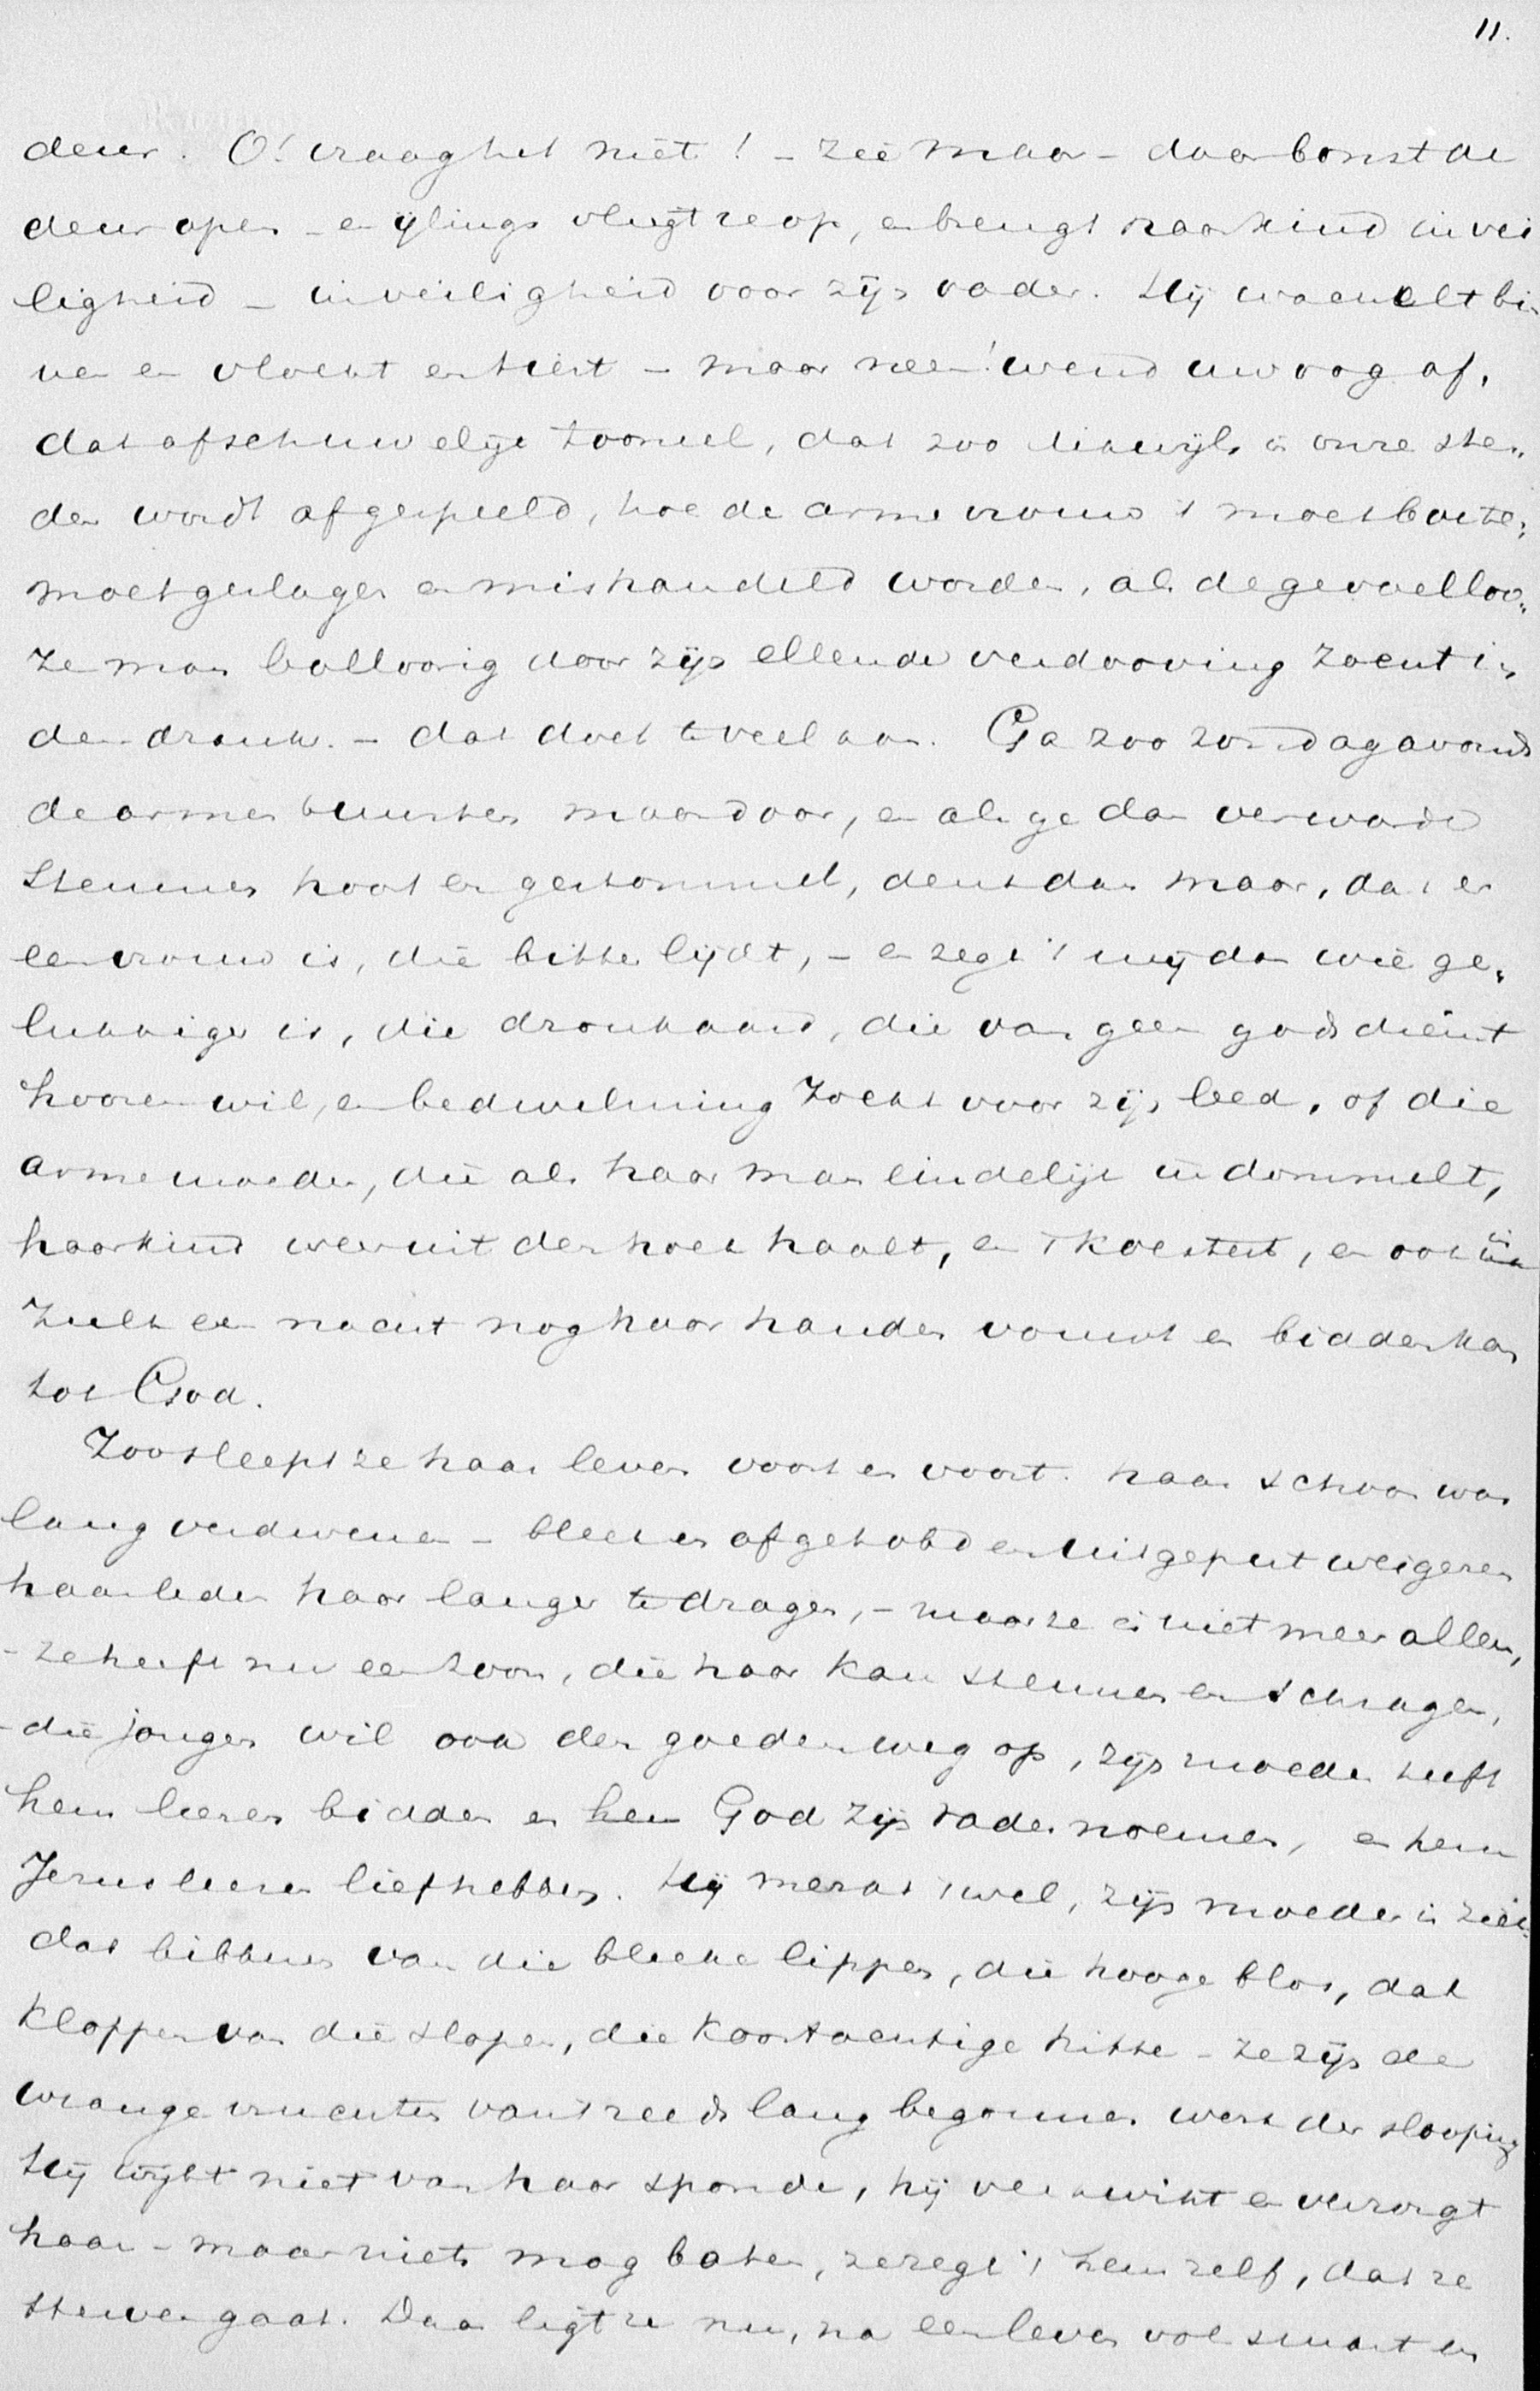 11.
deur. O! vraag het niet! – zie maar – daar bonst de
deur open – en ijlings vliegt ze op, en brengt haar kind in vei
ligheid – in veiligheid voor zijn vader. Hij waggelt bin
nen en vloekt en tiert – maar neen! wend uw oog af,
dat afschuwelijk tooneel, dat zoo dikwijls in onze ste„
den wordt afgespeeld, hoe de arme vrouw 't moet boeten,
moet geslagen en mishandeld worden, als de gevoelloo„
ze man balloorig door zijn ellende verdooving zoekt in
den drank. – dat doet te veel aan. Ga zoo zondagavond
de armen buurten maar door, en als ge dan verwarde
stemmen hoort en gestommel, denk dan maar, dat er
een vrouw is, die bitter lijdt, – en zegt 't mij dan wie ge„
lukkiger is, die dronkaard, die van geen godsdienst
hooren wil, en bedwelming zoekt voor zijn leed, of die
arme moeder, die als haar man eindelijk indommelt,
haar kind weer uit den hoek haalt, en 't koestert, en ook in
zulk een nacht nog haar handen vouwt en bidden kan
tot God.
Zoo sleept ze haar leven voort en voort. haar schoon was
lang verdwenen – bleek en afgetobd en uitgeput weigeren
haar leden haar langer te dragen, – maar ze is niet meer alleen,
– ze heeft nu een zoon, die haar kan steunen en schragen,
– die jongen wil ook den goeden weg op, zijn moeder heeft
hem leeren bidden en hem God zijn Vader noemen, en hem
Jezus leeren liefhebben. Hij merkt 't wel, zijn moeder is ziek
dat bibberen van die bleeke lippen, die hooge blos, dat
kloppen van die slapen, die koortsachtige hitte – ze zijn de
wrange vruchten van 't reeds lang begonnen werk der slooping
Hij wijkt niet van haar sponde, hij verkwikt en verzorgt
haar – maar niets mag baten, ze zegt 't hem zelf, dat ze
sterven gaat. Daar ligt ze nu, na een leven vol smart en